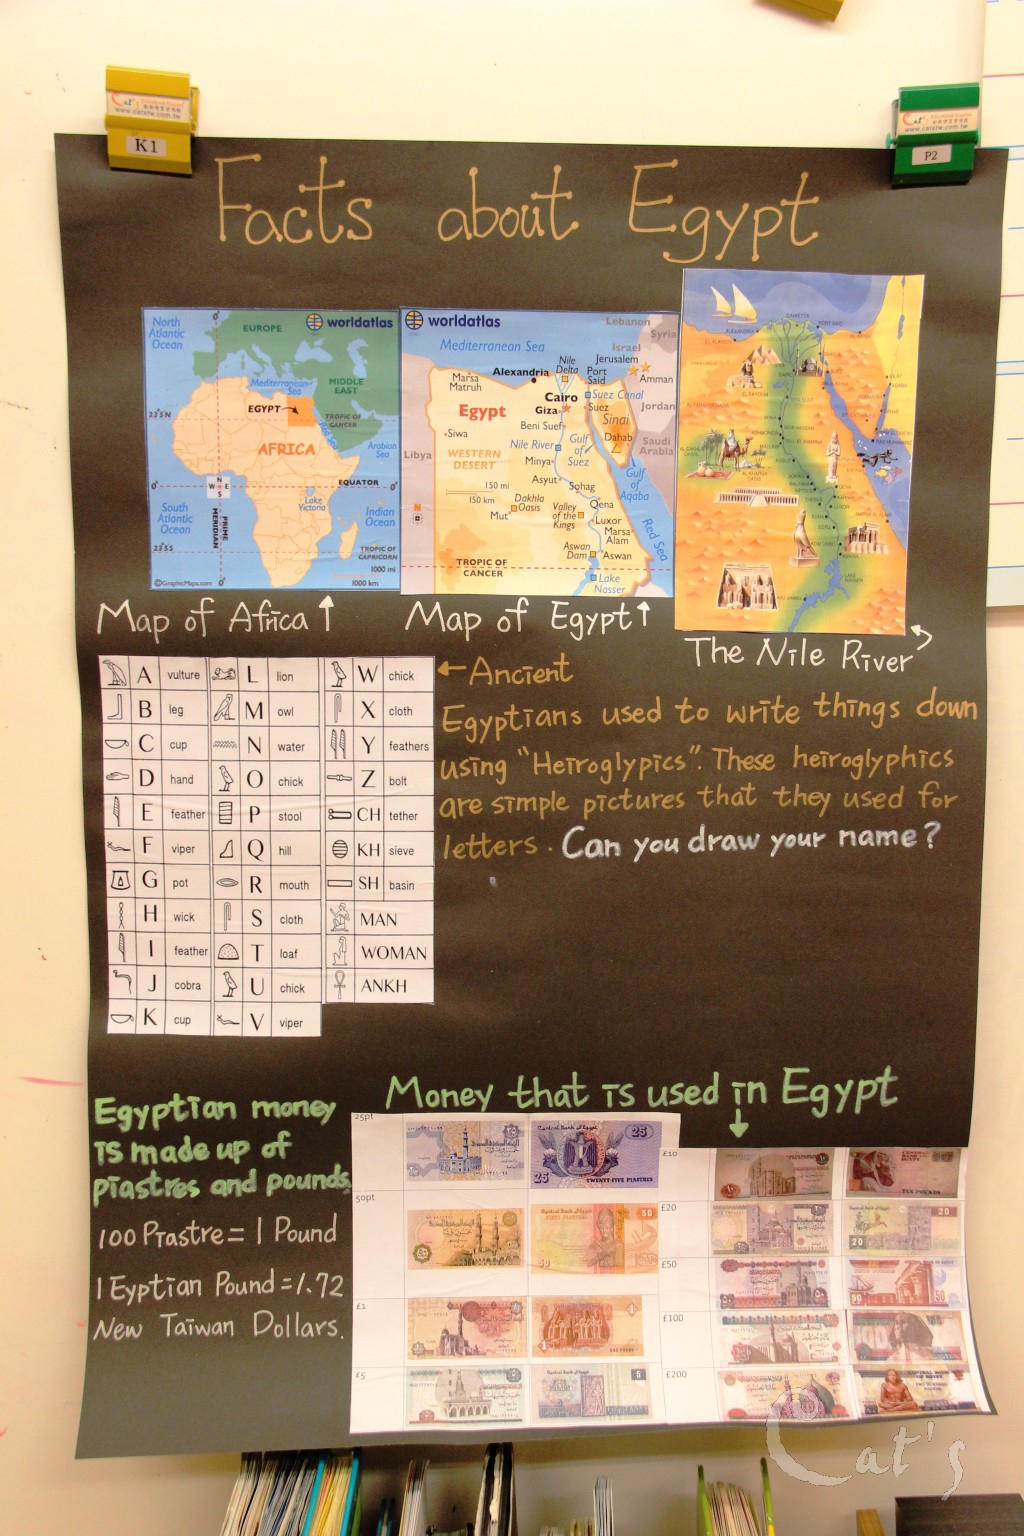 Cat's Educational Supplies
www.catstw.com.tw
K1
Cat's Educational Supplies
www.catstw.com.tw
P2
Facts about Egypt
North
Atlantic
Ocean
EUROPE
worldatlas
Mediterranean
Sea
MIDDLE
EAST
EGYPT
23°5N
TROPIC OF
CANCER
Red Sea
AFRICA
Arabian
Sea
0°
N
W E
S
EQUATOR
0°
Lake
Victoria
South
Atlantic
Ocean
PRIME
MERIDIAN
Indian
Ocean
23°5S
TROPIC OF
CAPRICORN
1000 mi
1000 km
©GraphicMaps.com
0°
worldatlas
Lebanon
Syria
Mediterranean Sea
Israel
Jerusalem
Nile
Delta
Port
Said
Amman
Marsa
Matruh
Alexandria
Cairo
Suez Canal
Egypt
Giza
Suez
Jordan
Siwa
Beni Suef
Sinai
Nile River
Gulf
of
Suez
Dahab
Saudi
Arabia
Libya
WESTERN
DESERT
Minya
Gulf
of
Aqaba
150 mi
150 km
Asyut
Sohag
Dakhla
Oasis
Mut
Valley
of the
Kings
Qena
Luxor
Marsa
Alam
Red Sea
N
Aswan
Dam
Aswan
TROPIC OF
CANCER
Lake
Nasser
Map of Africa ↑
Map of Egypt ↑
The Nile River
A vulture L lion W chick
B leg M owl X cloth
C cup N water Y feathers
D hand O chick Z bolt
E feather P stool CH tether
F viper Q hill KH sieve
G pot R mouth SH basin
H wick S cloth MAN
I feather T loaf WOMAN
J cobra U chick ANKH
K cup V viper
← Ancient
Egyptians used to write things down
using "Heiroglypics". These heiroglyphics
are simple pictures that they used for
letters. Can you draw your name?
Money that is used in Egypt
Egyptian money
is made up of
piastres and pounds
100 Piastre = 1 Pound
1 Eyptian Pound = 1.72
New Taiwan Dollars.
25pt
Central Bank of Egypt
25
25
TWENTY-FIVE PIASTRES
50pt
50
50
£1
1
£5
5
£10
TEN POUNDS
£20
20
20
£50
50
£100
£200
Cat's